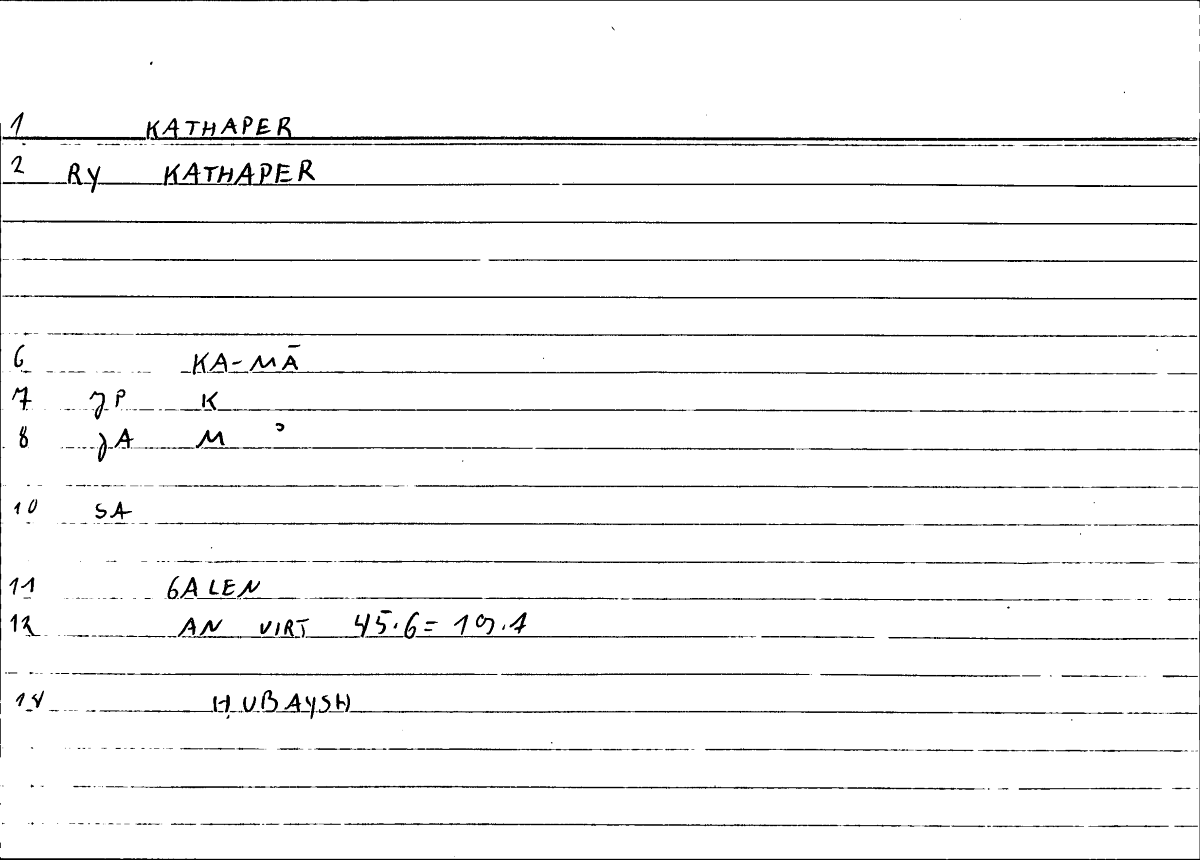 1 KATHAPER
2 RY KATHAPER
6 KA-MĀ
7 JP K
8 JA M ʾ
10 SA
11 GALEN
12 AN VIRT 45.6= 19.1
14 ḤUBAYSH